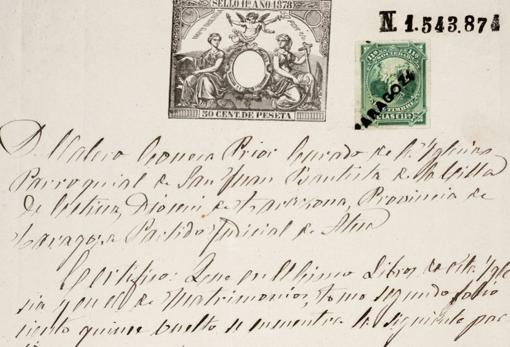 SELLO 11º AÑO 1878
N 1.543.874
50 CENT. DE PESETA
ZARAGOZA
TIMBRE
CLASE 11ª
D. Valero Prior Curado de la Iglesia
Parroquial de San Juan Bautista de la Villa
de Cetina, Diocesi de Tarazona, Provincia de
Zaragoza Partido Judicial de Ateca
Certifico: Que en el libro de esta Ygle
sia y en el de Matrimonios, tomo segundo folio
ciento quince vuelto se encuentra la siguiente par